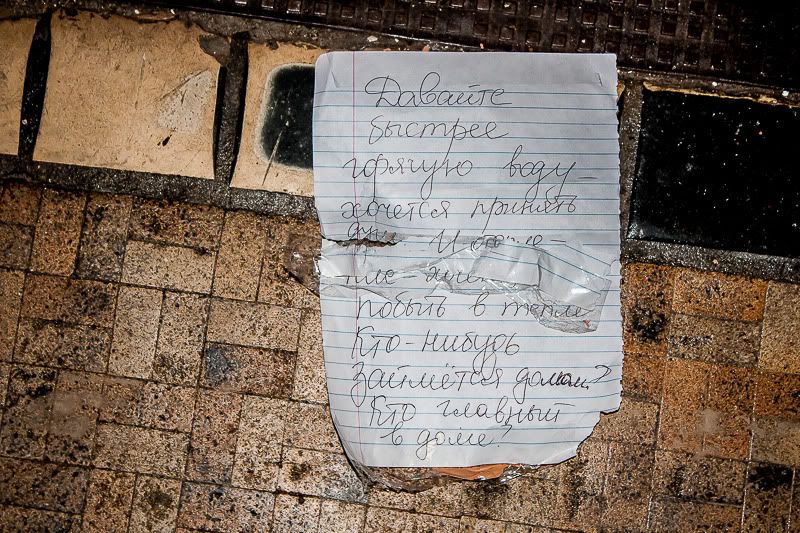 Давайте
быстрее
горячую воду_
хочется принять
душ. И
побыть в тепле
Кто-нибудь
займётся домом?
Кто главный
в доме?